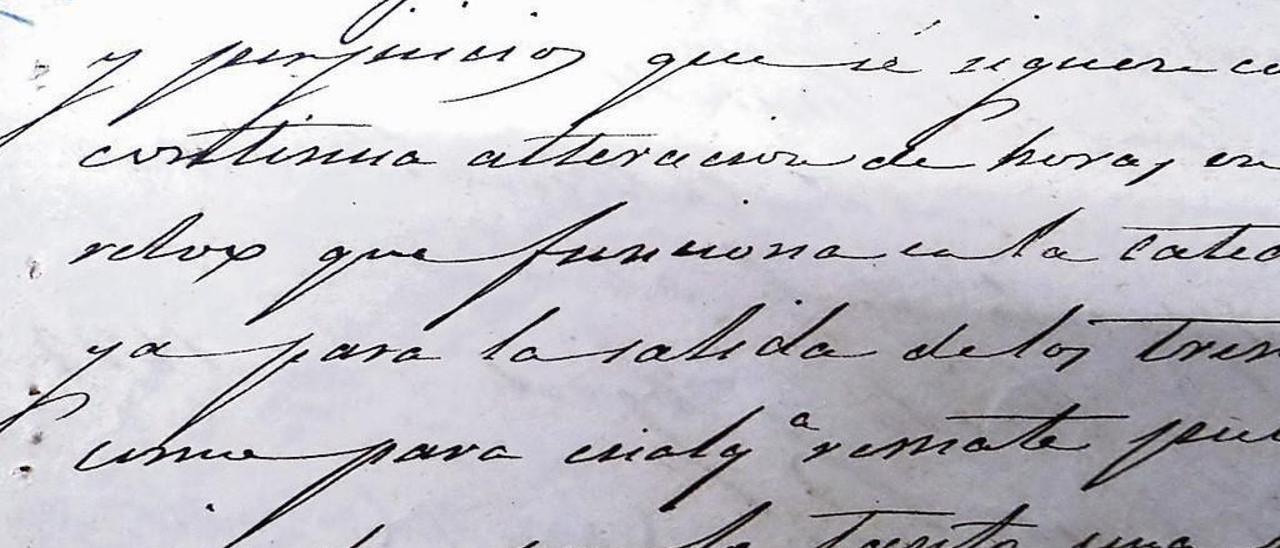 y perjuicios que sé siguen co
continua alteracion de horas en
relox que funciona en la cated
ya para la salida de los tren
como para cualqª remate pu
la tanto una